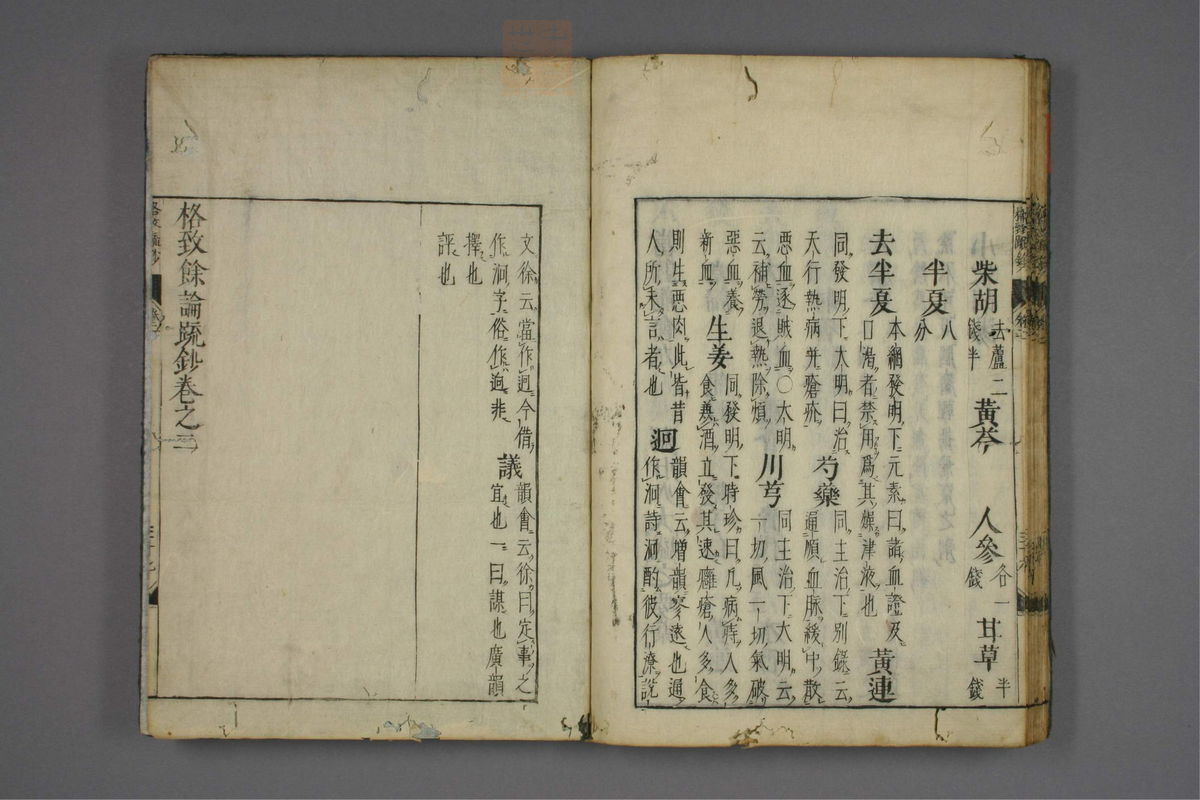 小柴胡 去蘆二錢半 黃芩 人參 各一錢 甘草 半錢
半夏 八分
去半夏 本綱發明下元素曰諸血證及
口渴者禁用爲其燥津液也 黃連
同發明下大明曰治 芍藥 同主治下別錄云
天行熱病并瘡疣 通順血脉緩中散
惡血逐賊血○大明 川芎 同主治下大明云
云補勞退熱除煩 一切風一切氣破
惡血養 生姜 同發明下時珍曰凡病痔人多
新血 食兼酒立發甚速癰瘡人多食
則生惡肉此皆昔 迥 韻會云增韻寥遠也通
人所未言者也 作泂詩泂酌彼行潦說
文徐云當作迥今借 議 韻會云徐曰定事之
作泂字俗作逈非 宜也一曰謀也廣韻
擇也
評也
格致餘論疏鈔卷之三